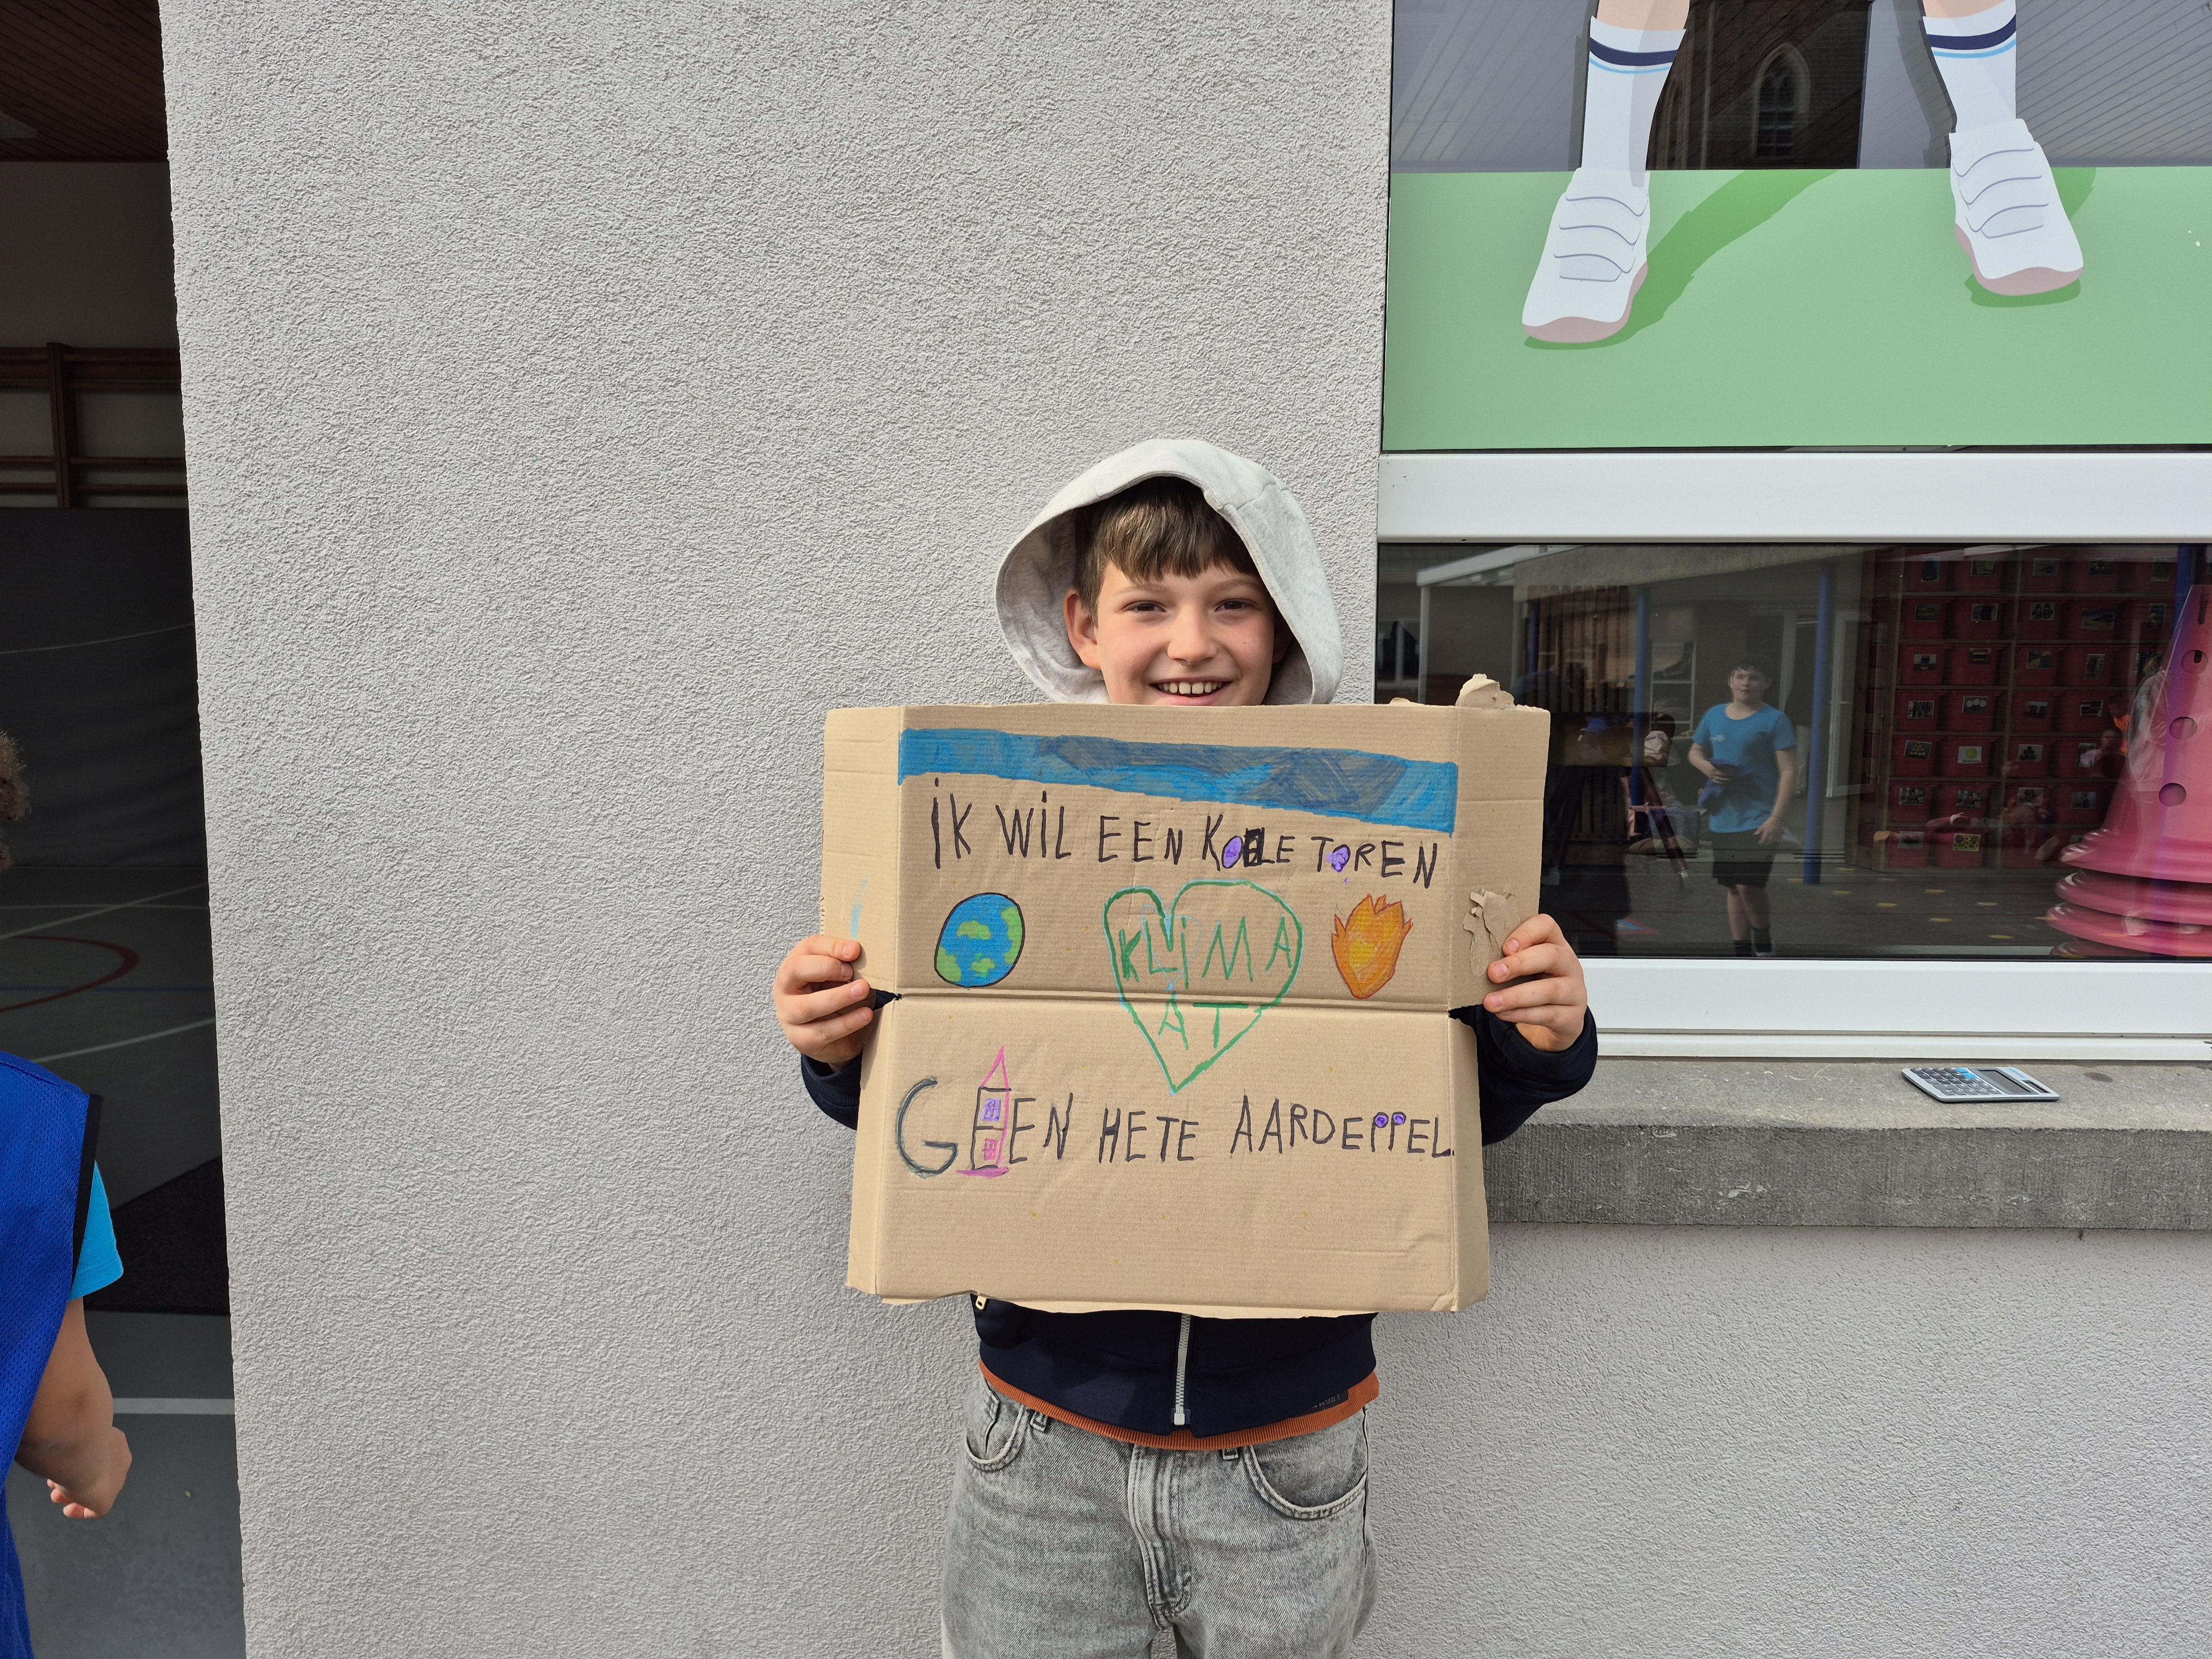 iK WiL EEN KOELE TOREN
KLiMA
AT
GEEN HETE AARDEPPEL.